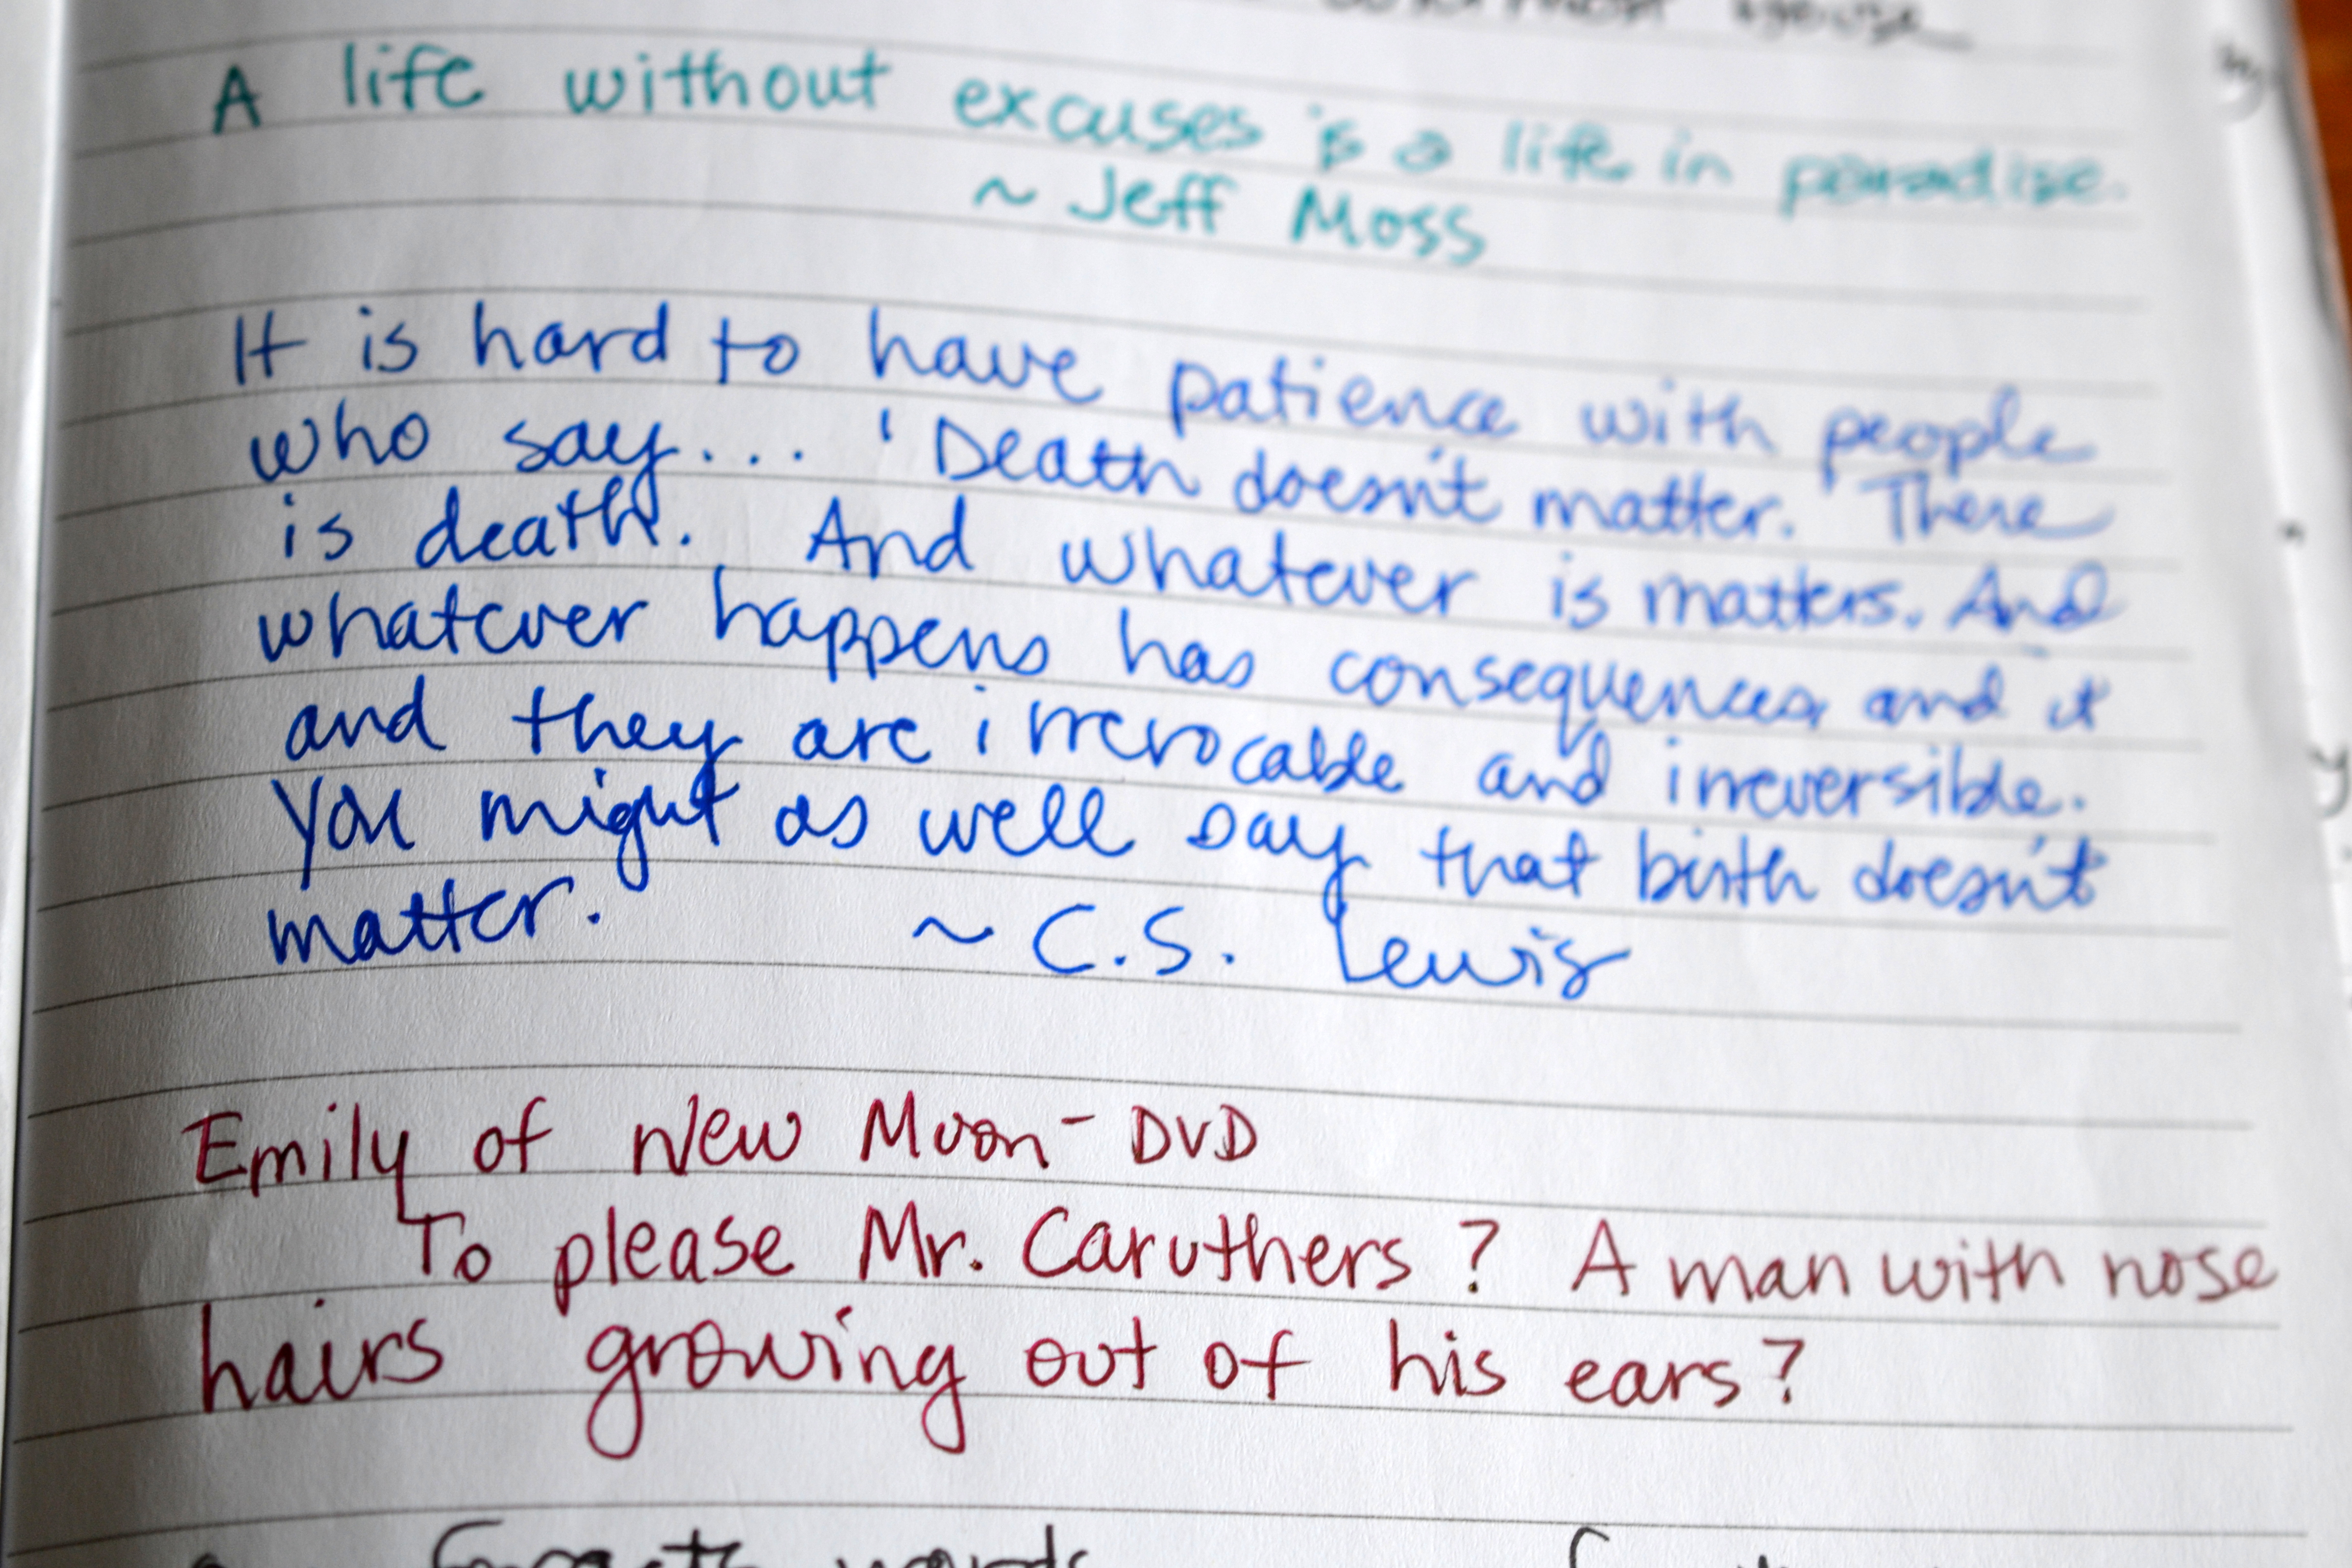 A life without excuses is a life in paradise.
~ Jeff Moss
It is hard to have patience with people
who say... 'Death doesn't matter.' There
is death. And whatever is matters. And
whatever happens has consequences, and it
and they are irrevocable and irreversible.
You might as well say that birth doesn't
matter. ~ C.S. Lewis
Emily of New Moon - DVD
To please Mr. Caruthers? A man with nose
hairs growing out of his ears?
words